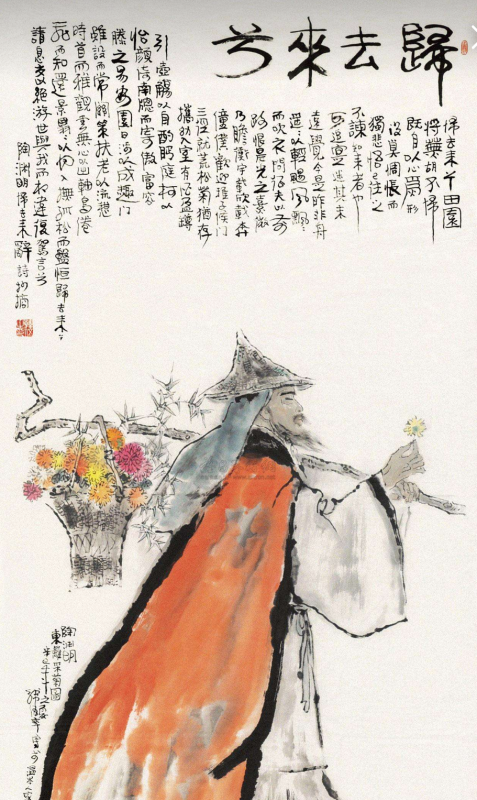 歸去來兮
歸去来兮田園
將蕪胡不歸
既自以心爲形
役奚惆悵而
獨悲悟已往之
不諫知来者
追實迷其未
遠覺今是昨非舟
遥以輕颺風飄
而吹衣問征夫以前
路恨晨光之熹微
乃瞻衡宇載欣載奔
僮僕歡迎稚子候門
三徑就荒松菊猶存
攜幼入室有酒盈罇
引壺觴以自酌眄庭柯以
怡顔倚南窗而寄傲審容
膝之易安園日涉以成趣門
雖設而常關策扶老以流憩
時首而雲無心以出岫鳥倦
飛而知還景翳以入撫孤松而盤恒歸去来
請息交以絶游世與我而相違復駕言兮
陶淵明歸去来辭詩抄摘
陶淵明
東籬采菊圖